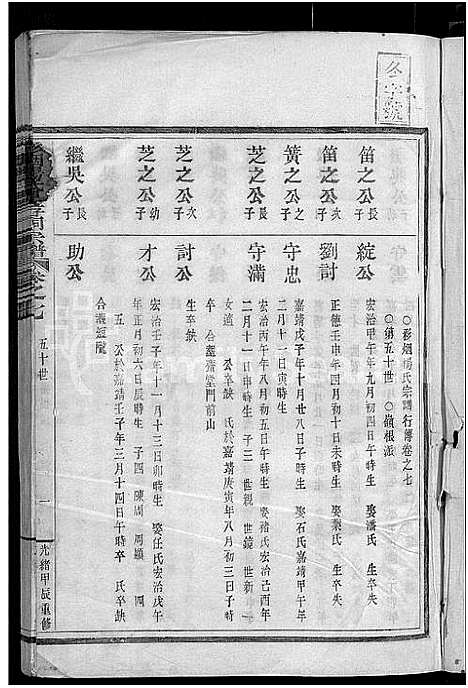 冬字號
彭烟楊氏宗譜行傳卷之七
○第五十世 ○嶺根派
笛之公長子 綻公 宏治甲午年九月初四日午時生 娶潘氏 生卒失
笛之公次子 劉討 正德壬申年四月初十日未時生 娶葉氏 生卒失
簧之公之子 守忠 嘉靖戊子年十月廿八日子時生 娶石氏嘉靖甲午年
二月十一日寅時生
芝之公長子 守滿 宏治丙午年八月初五日午時生 娶褚氏宏治己酉年
二月十一日申時生 子三 世親 世鏡 世新 一
女適 公卒缺 氏於嘉靖庚寅年八月初三日子時
卒 合塟齋堂門前山
芝之公次子 討公 生卒缺
芝之公幼子 才公 宏治壬子年十一月十三日卯時生 娶任氏宏治戊午
年正月初六日辰時生 子四 陳周 周顯 四
五 公於嘉靖壬子年三月十四日午時卒 氏卒缺
合塟迴龍
繼吳公長子 助公
宗譜 卷之七 五十世 一 光緒甲辰重修